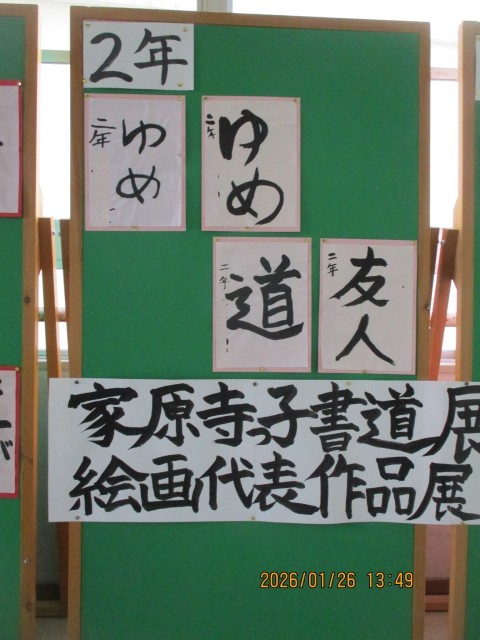 2年
二年
ゆめ
二年
ゆめ
二年
道
二年
友人
家原寺っ子書道展
絵画代表作品展
2026/01/26 13:49